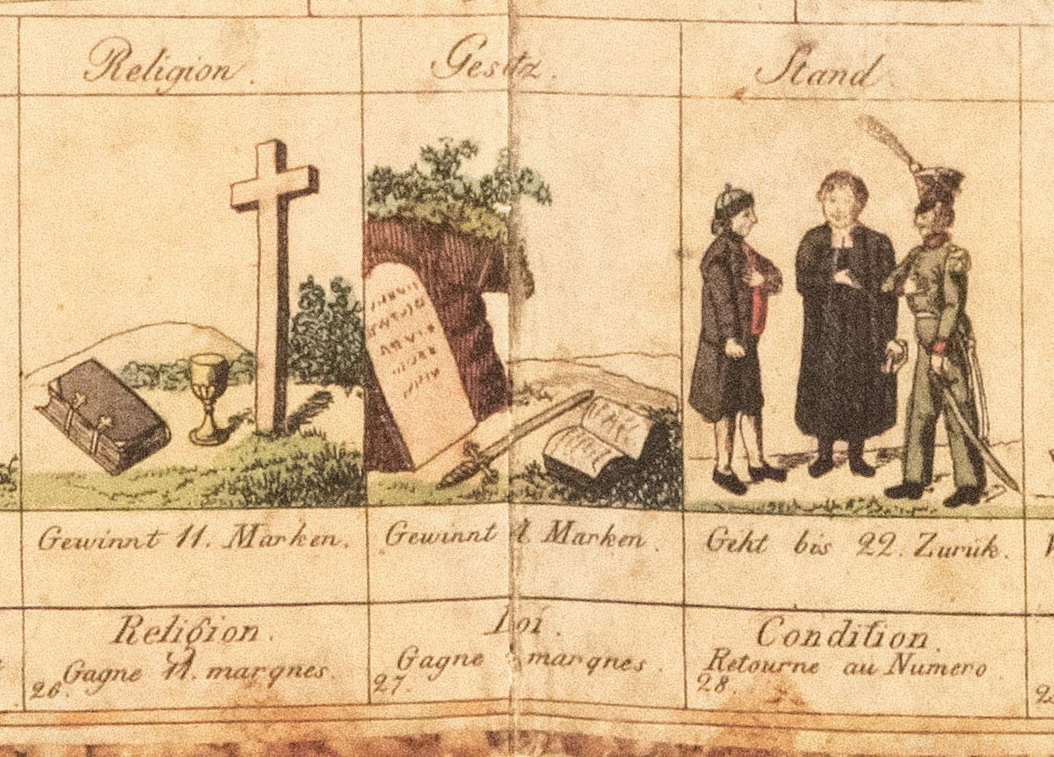 Religion.
Gewinnt 11. Marken.
Religion.
Gagne 11. marqnes.
26.
Gesetz.
Gewinnt Marken.
Loi.
Gagne marqnes.
27.
Stand
Geht bis 22. Zurük.
Condition.
Retourne au Numero
28.